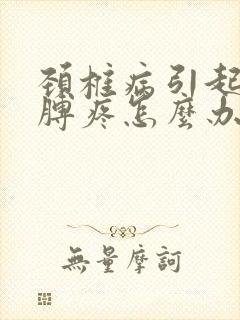 頚椎病引起
脾疼怎麼办
無量摩訶